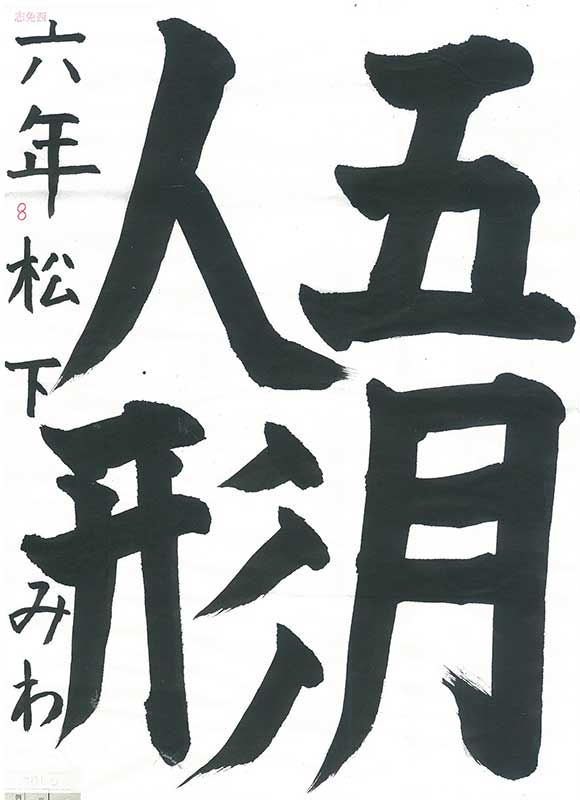 五月
人形
六年 松下 みわ
志免西
8